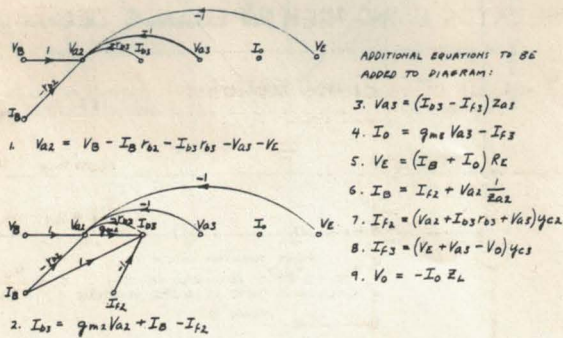 -1
-1
V_B 1 V_a2 -r_b3 I_b3 V_a3 I_o V_E
-r_b2
I_B
1. V_a2 = V_B - I_B r_b2 - I_b3 r_b3 - V_a3 - V_E
-1
-1
-r_b3
V_B 1 V_a2 g_m2 I_b3 V_a3 I_o V_E
-r_b2 1 -1
I_B I_f2
2. I_b3 = g_m2 V_a2 + I_B - I_f2
ADDITIONAL EQUATIONS TO BE
ADDED TO DIAGRAM:
3. V_a3 = (I_b3 - I_f3) z_a3
4. I_o = g_m3 V_a3 - I_f3
5. V_E = (I_B + I_o) R_E
6. I_B = I_f2 + V_a2 1/z_a2
7. I_f2 = (V_a2 + I_b3 r_b3 + V_a3) y_c2
8. I_f3 = (V_E + V_a3 - V_o) y_c3
9. V_o = -I_o Z_L